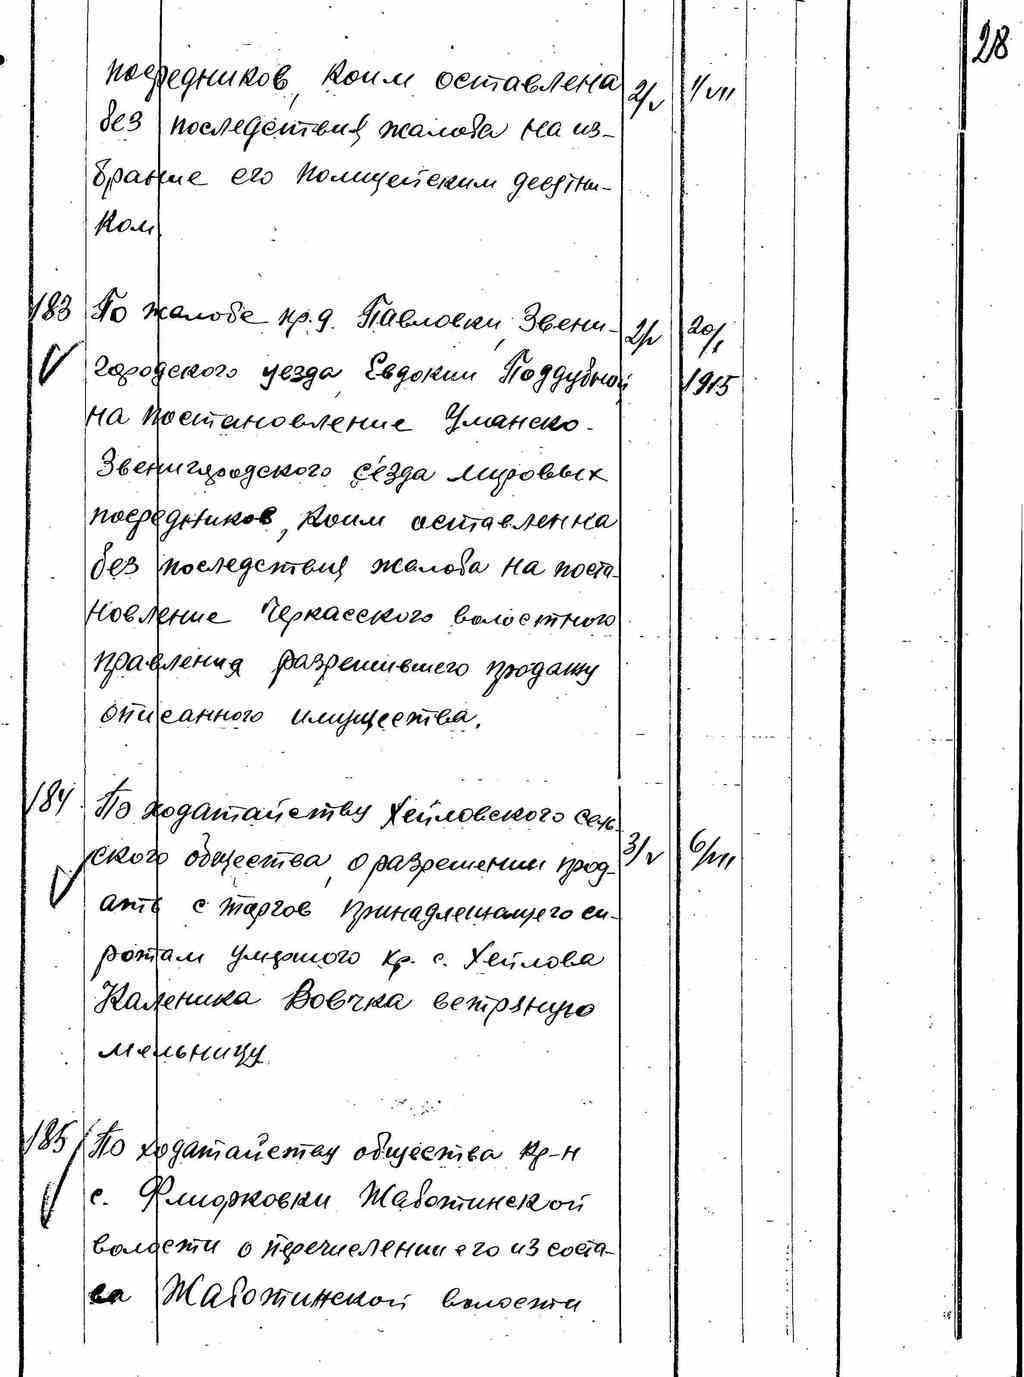 28
посредников, коим оставлена 2/V 1/VII
без последствий жалоба на из-
брание его полицейским десятни-
ком
183 По жалобе кр. д. Павловки, Звени- 2/V 20/I
городского уезда, Евдокии Поддубной 1915
на постановление Уманско-
Звенигородского с'езда мировых
посредников, коим оставленна
без последствия жалоба на поста-
новление Черкасского волостного
правления разрешившего продажу
описанного имущества.
184 По ходатайству Хейловского сель-
ского общества, о разрешении прод- 3/V 6/VII
ать с торгов принадлежащего си-
ротам умершого кр. с. Хейлова
Каленика Вовчка ветряную
мельницу
185 По ходатайству общества кр-н
с. Флиорковки Жаботинской
волости о перечислении его из соста-
ва Жаботинской волости